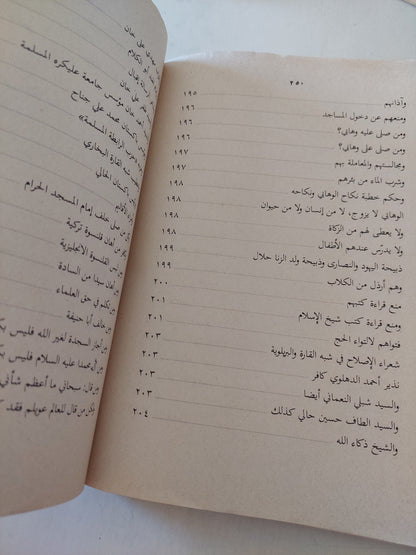 ٢٥٠
وآذانهم ١٩٥
ومنعهم عن دخول المساجد
ومن صلى عليه وهابي؟ ١٩٦
ومن صلى على وهابي؟ ١٩٦
ومجالستهم والمعاملة بهم ١٩٧
وشرب الماء من بئرهم ١٩٧
وحكم خطبة نكاح الوهابي ونكاحه ١٩٨
الوهابي لا يزوج، لا من إنسان ولا من حيوان ١٩٨
ولا يعطى لهم من الزكاة ١٩٨
ولا يدرّس عندهم الأطفال ١٩٨
ذبيحة اليهود والنصارى وذبيحة ولد الزنا حلال ١٩٩
وهم أرذل من الكلاب ١٩٩
منع قراءة كتبهم ٢٠٠
ومنع قراءة كتب شيخ الإسلام ٢٠١
فتواهم لالتواء الحج ٢٠١
شعراء الإصلاح في شبه القارة والبريلوية ٢٠٣
نذير أحمد الدهلوي كافر
والسيد شبلي النعماني أيضا ٢٠٣
والسيد الطاف حسين حالي كذلك ٢٠٣
والشيخ ذكاء الله ٢٠٤
علي خان
مؤسس جامعة عليكره المسلمة
باكستان محمد علي جناح
الرابطة المسلمة»
شبه القارة البخاري
باكستان الحالي
من صلى خلف إمام المسجد الحرام
من أهان قلنسوة تركية
القلنسوة الانجليزية
من أهان سيدا من السادة
من تكلم في حق العلماء
من خالف أبا حنيفة
من أجاز السجدة لغير الله فليس
محمدا عليه السلام فليس
من قال: سبحاني ما أعظم شأني
من قال للعالم عويلم فقد